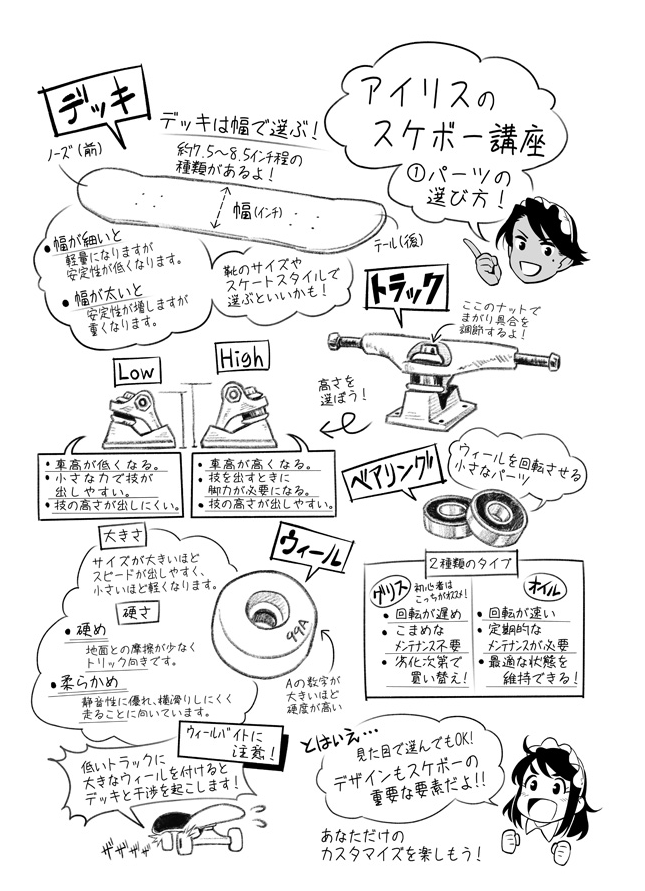 アイリスの
スケボー講座
①パーツの
選び方！
デッキ
デッキは幅で選ぶ！
約7.5～8.5インチ程の
種類があるよ！
ノーズ(前)
幅(インチ)
テール(後)
• 幅が細いと
軽量になりますが
安定性が低くなります。
• 幅が太いと
安定性が増しますが
重くなります。
靴のサイズや
スケートスタイルで
選ぶといいかも！
トラック
ここのナットで
まがり具合を
調節するよ！
高さを
選ぼう！
Low
• 車高が低くなる。
• 小さな力で技が
出しやすい。
• 技の高さが出しにくい。
High
• 車高が高くなる。
• 技を出すときに
脚力が必要になる。
• 技の高さが出しやすい。
ベアリング
ウィールを回転させる
小さなパーツ
2種類のタイプ
グリス
初心者は
こっちがオススメ！
• 回転が遅め
• こまめな
メンテナンス不要
• 劣化次第で
買い替え！
オイル
• 回転が速い
• 定期的な
メンテナンスが必要
• 最適な状態を
維持できる！
ウィール
大きさ
サイズが大きいほど
スピードが出しやすく、
小さいほど軽くなります。
硬さ
• 硬め
地面との摩擦が少なく
トリック向きです。
• 柔らかめ
静音性に優れ、横滑りしにくく
走ることに向いています。
99A
Aの数字が
大きいほど
硬度が高い
ウィールバイトに
注意！
低いトラックに
大きなウィールを付けると
デッキと干渉を起こします！
ザザザザ
とはいえ…
見た目で選んでもOK！
デザインもスケボーの
重要な要素だよ！！
あなただけの
カスタマイズを楽しもう！